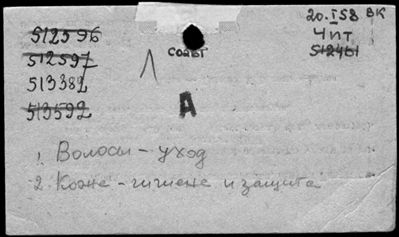 512596
512597
513382
513592
СОДБТ
20.I 58 ВК
Чпт
512461
А
1. Волосы - уход
2. Кожа - гигиена и защита